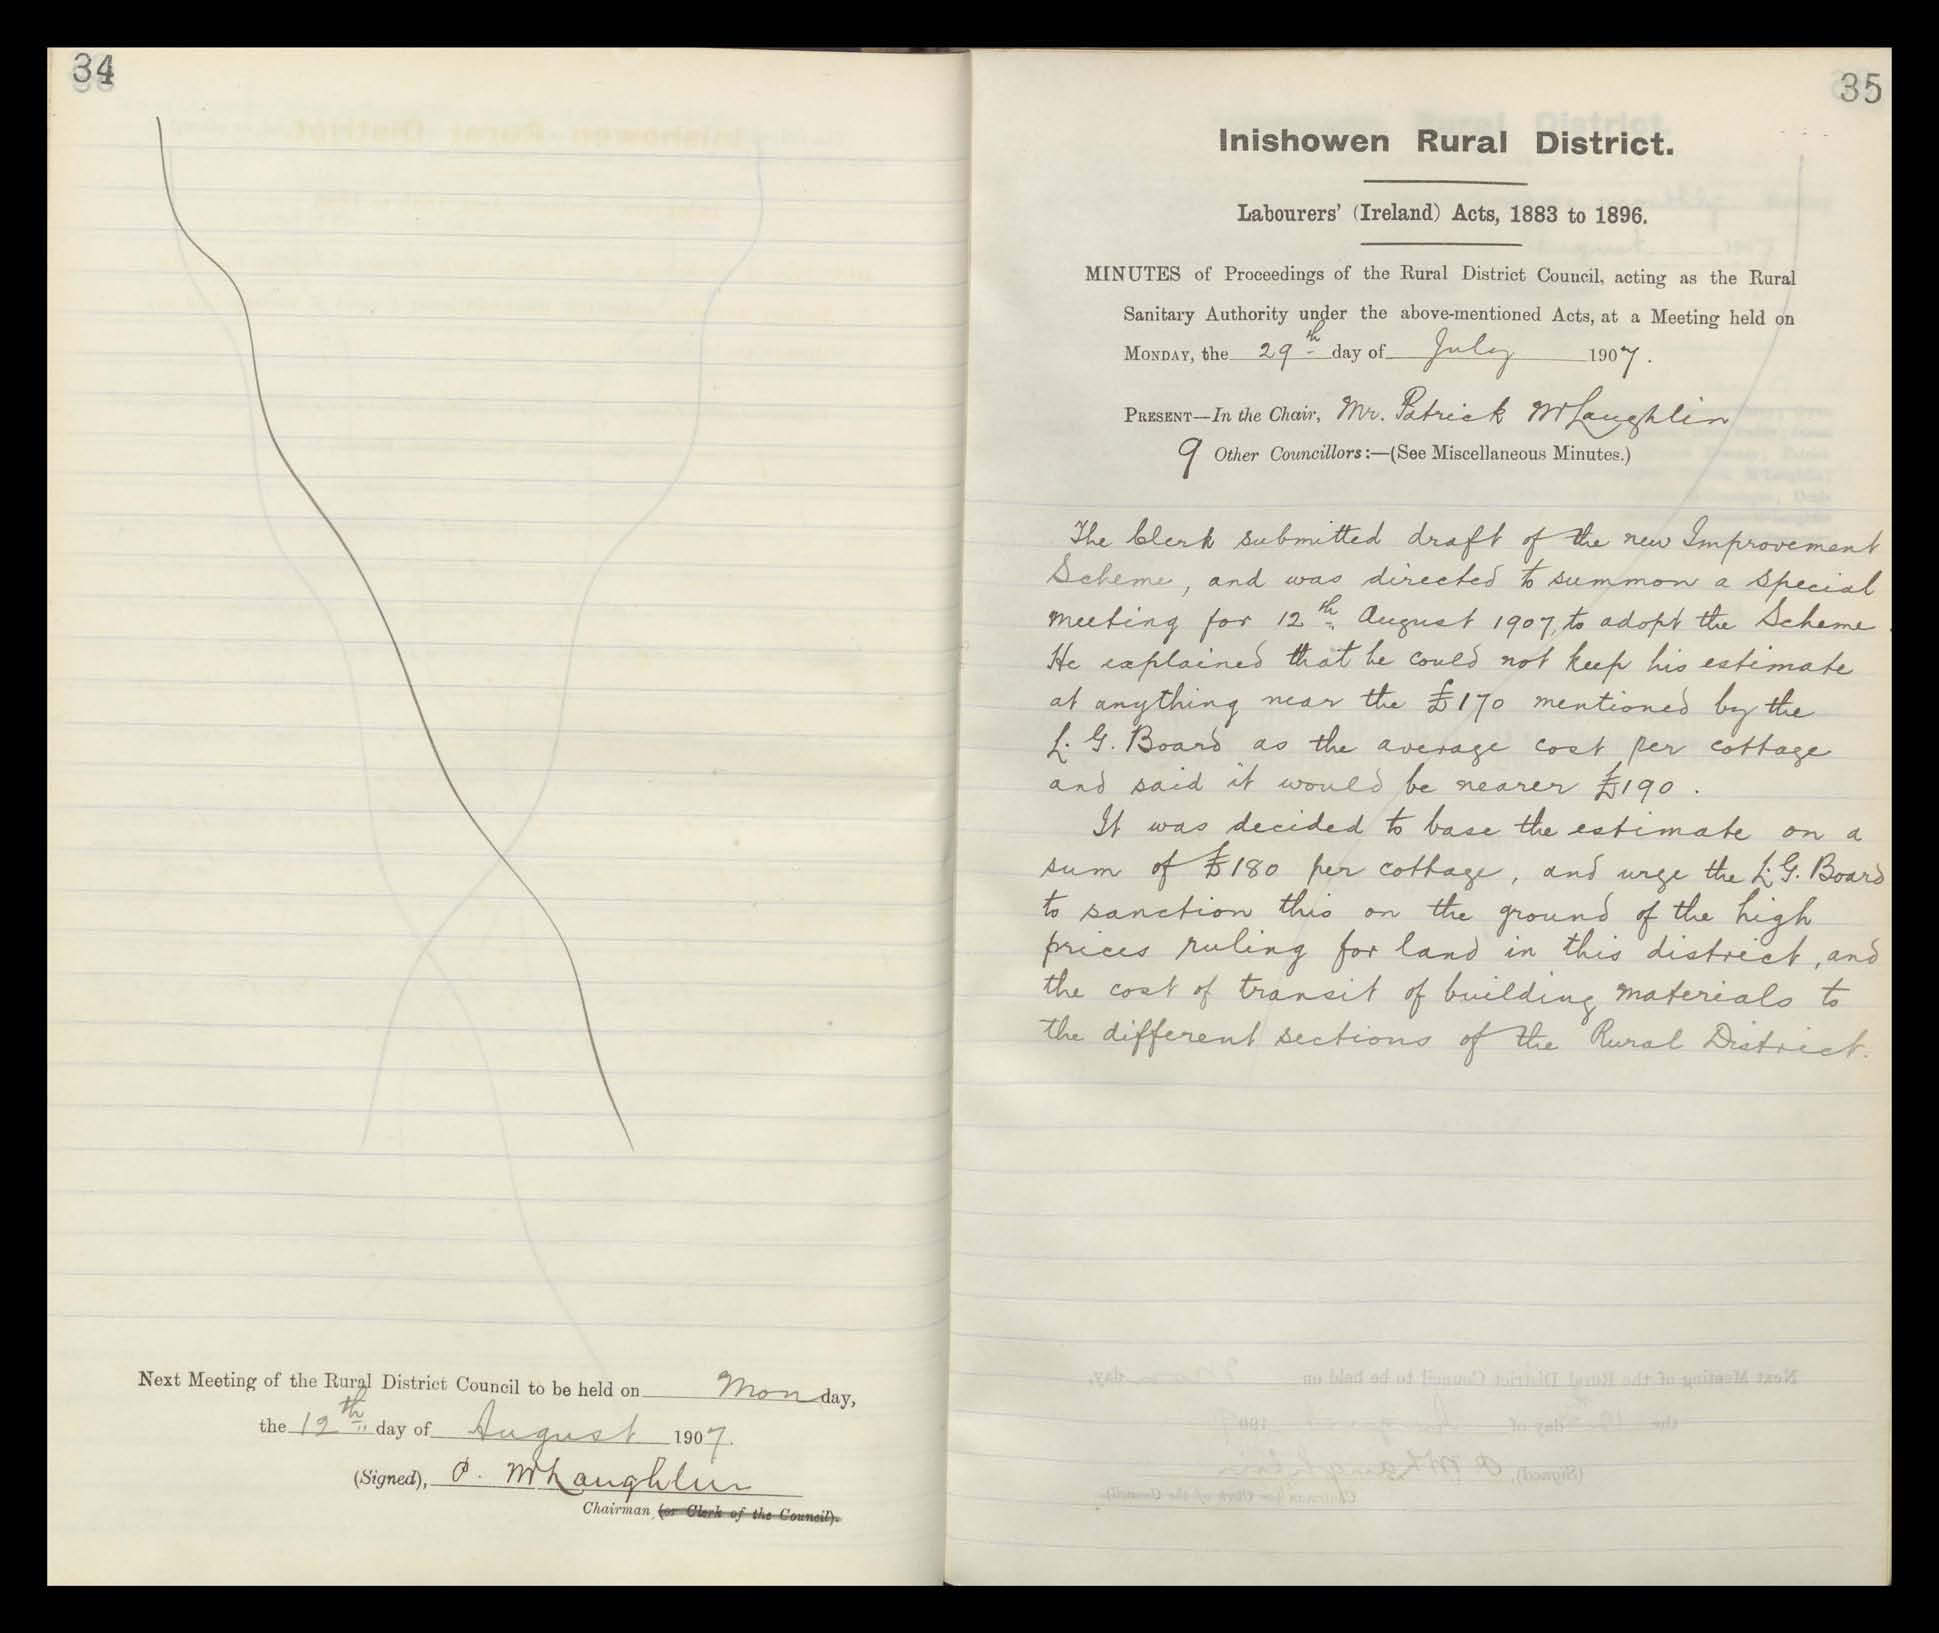 34
Next Meeting of the Rural District Council to be held on Monday,
the 12th day of August 1907.
(Signed), P. McLaughlin
Chairman (or Clerk of the Council).
35
Inishowen Rural District.
Labourers' (Ireland) Acts, 1883 to 1896.
MINUTES of Proceedings of the Rural District Council, acting as the Rural
Sanitary Authority under the above-mentioned Acts, at a Meeting held on
MONDAY, the 29th day of July 1907.
PRESENT—In the Chair, Mr. Patrick McLaughlin
9 Other Councillors:—(See Miscellaneous Minutes.)
The Clerk submitted draft of the new Improvement
Scheme, and was directed to summon a special
meeting for 12th August 1907, to adopt the Scheme.
He explained that he could not keep his estimate
at anything near the £170 mentioned by the
L. G. Board as the average cost per cottage
and said it would be nearer £190.
It was decided to base the estimate on a
sum of £180 per cottage, and urge the L. G. Board
to sanction this on the ground of the high
prices ruling for land in this district, and
the cost of transit of building materials to
the different sections of the Rural District.